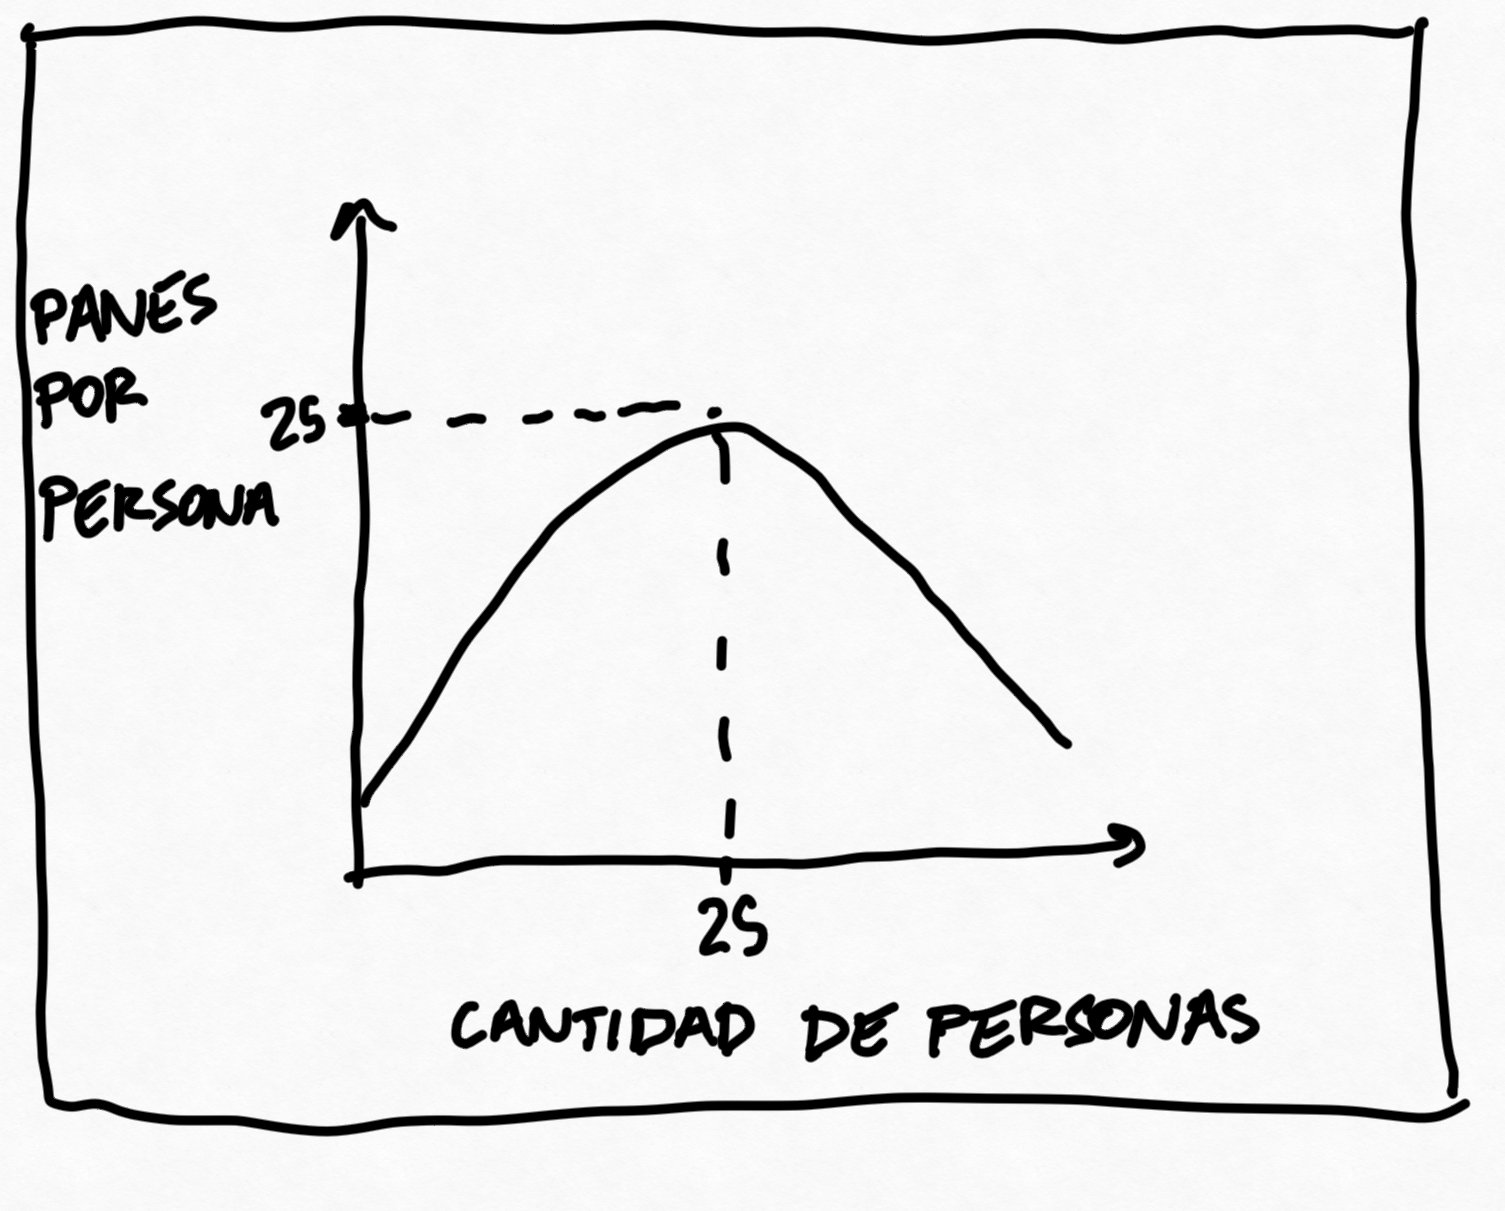 PANES
POR
PERSONA
25
25
CANTIDAD DE PERSONAS